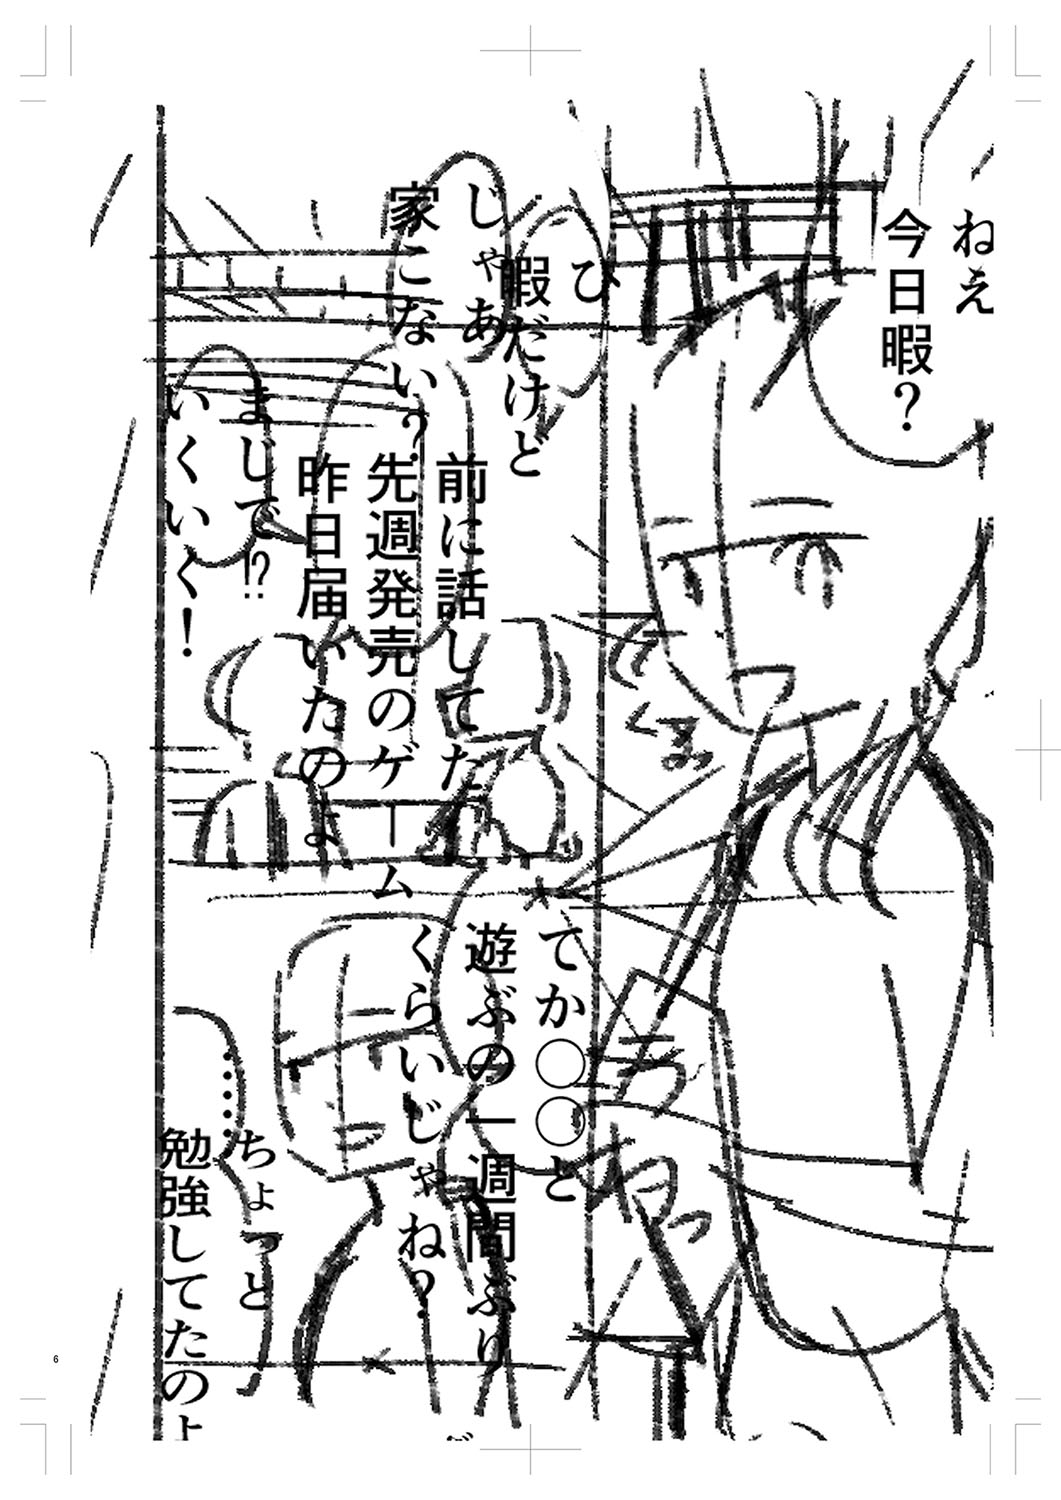 ねえ
今日暇?
ひ
暇だけど
じゃあ
家こない?
前に話してた
先週発売のゲーム
昨日届いたのよ
まじで!?
いくいく!
てか〇〇と
遊ぶの一週間ぶり
くらいじゃね?
……ちょっと
勉強してたのよ
6